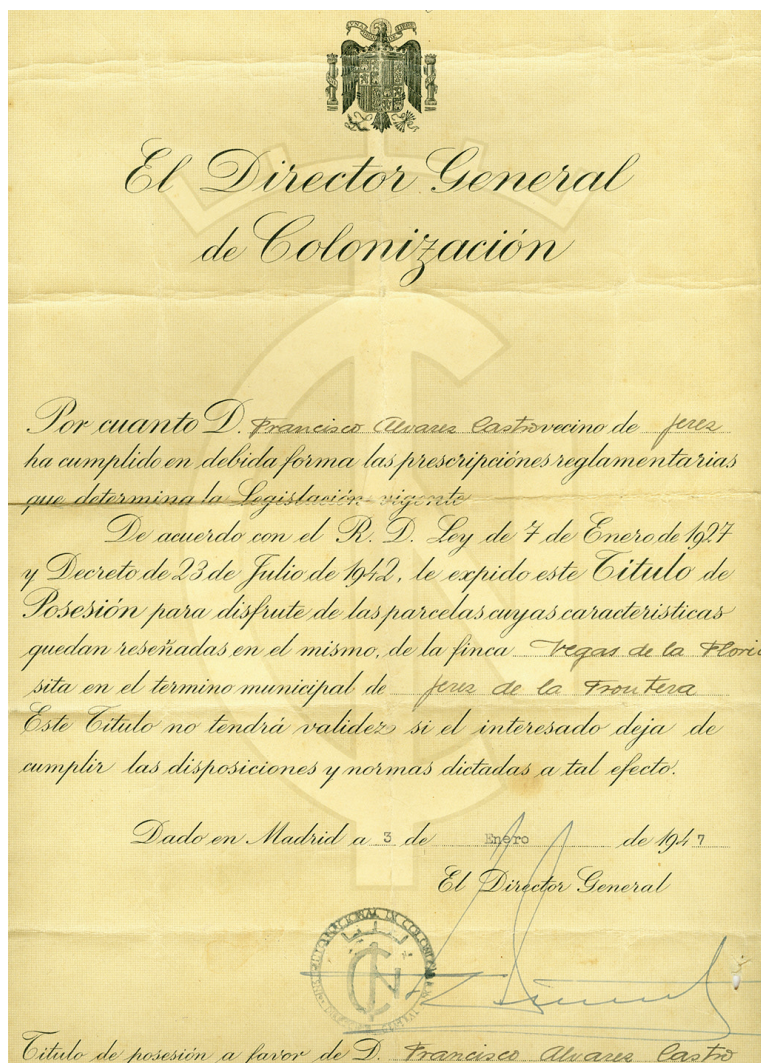 El Director General
de Colonización
Por cuanto D. Francisco Alvares Castro vecino de Jerez
ha cumplido en debida forma las prescripciónes reglamentarias
que determina la Legislación vigente
De acuerdo con el R. D. Ley de 7 de Enero de 1927
y Decreto de 23 de Julio de 1942, le expido este Titulo de
Posesión para disfrute de las parcelas cuyas caracteristicas
quedan reseñadas en el mismo, de la finca Vegas de la Flori
sita en el termino municipal de Jerez de la Frontera
Este Titulo no tendrá validez si el interesado deja de
cumplir las disposiciones y normas dictadas a tal efecto.
Dado en Madrid a 3 de Enero de 1947
El Director General
INSTITUTO NACIONAL DE COLONIZACION
Titulo de posesión a favor de D. Francisco Alvares Castro